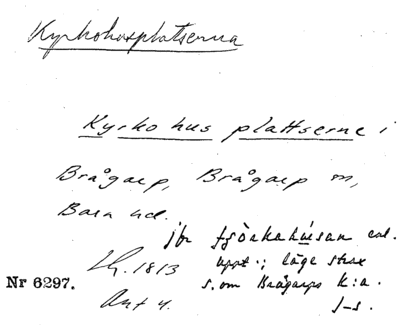 Kyrkohusplatserna
Kyrko hus plattserne i
Brågarp, Brågarp sn,
Bara hd.
jfr tjörkahúsan enl.
uppt.; läge strax
Lh. 1813
s. om Brågarps k:a.
Nr 6297.
Ant 4.
J-s.